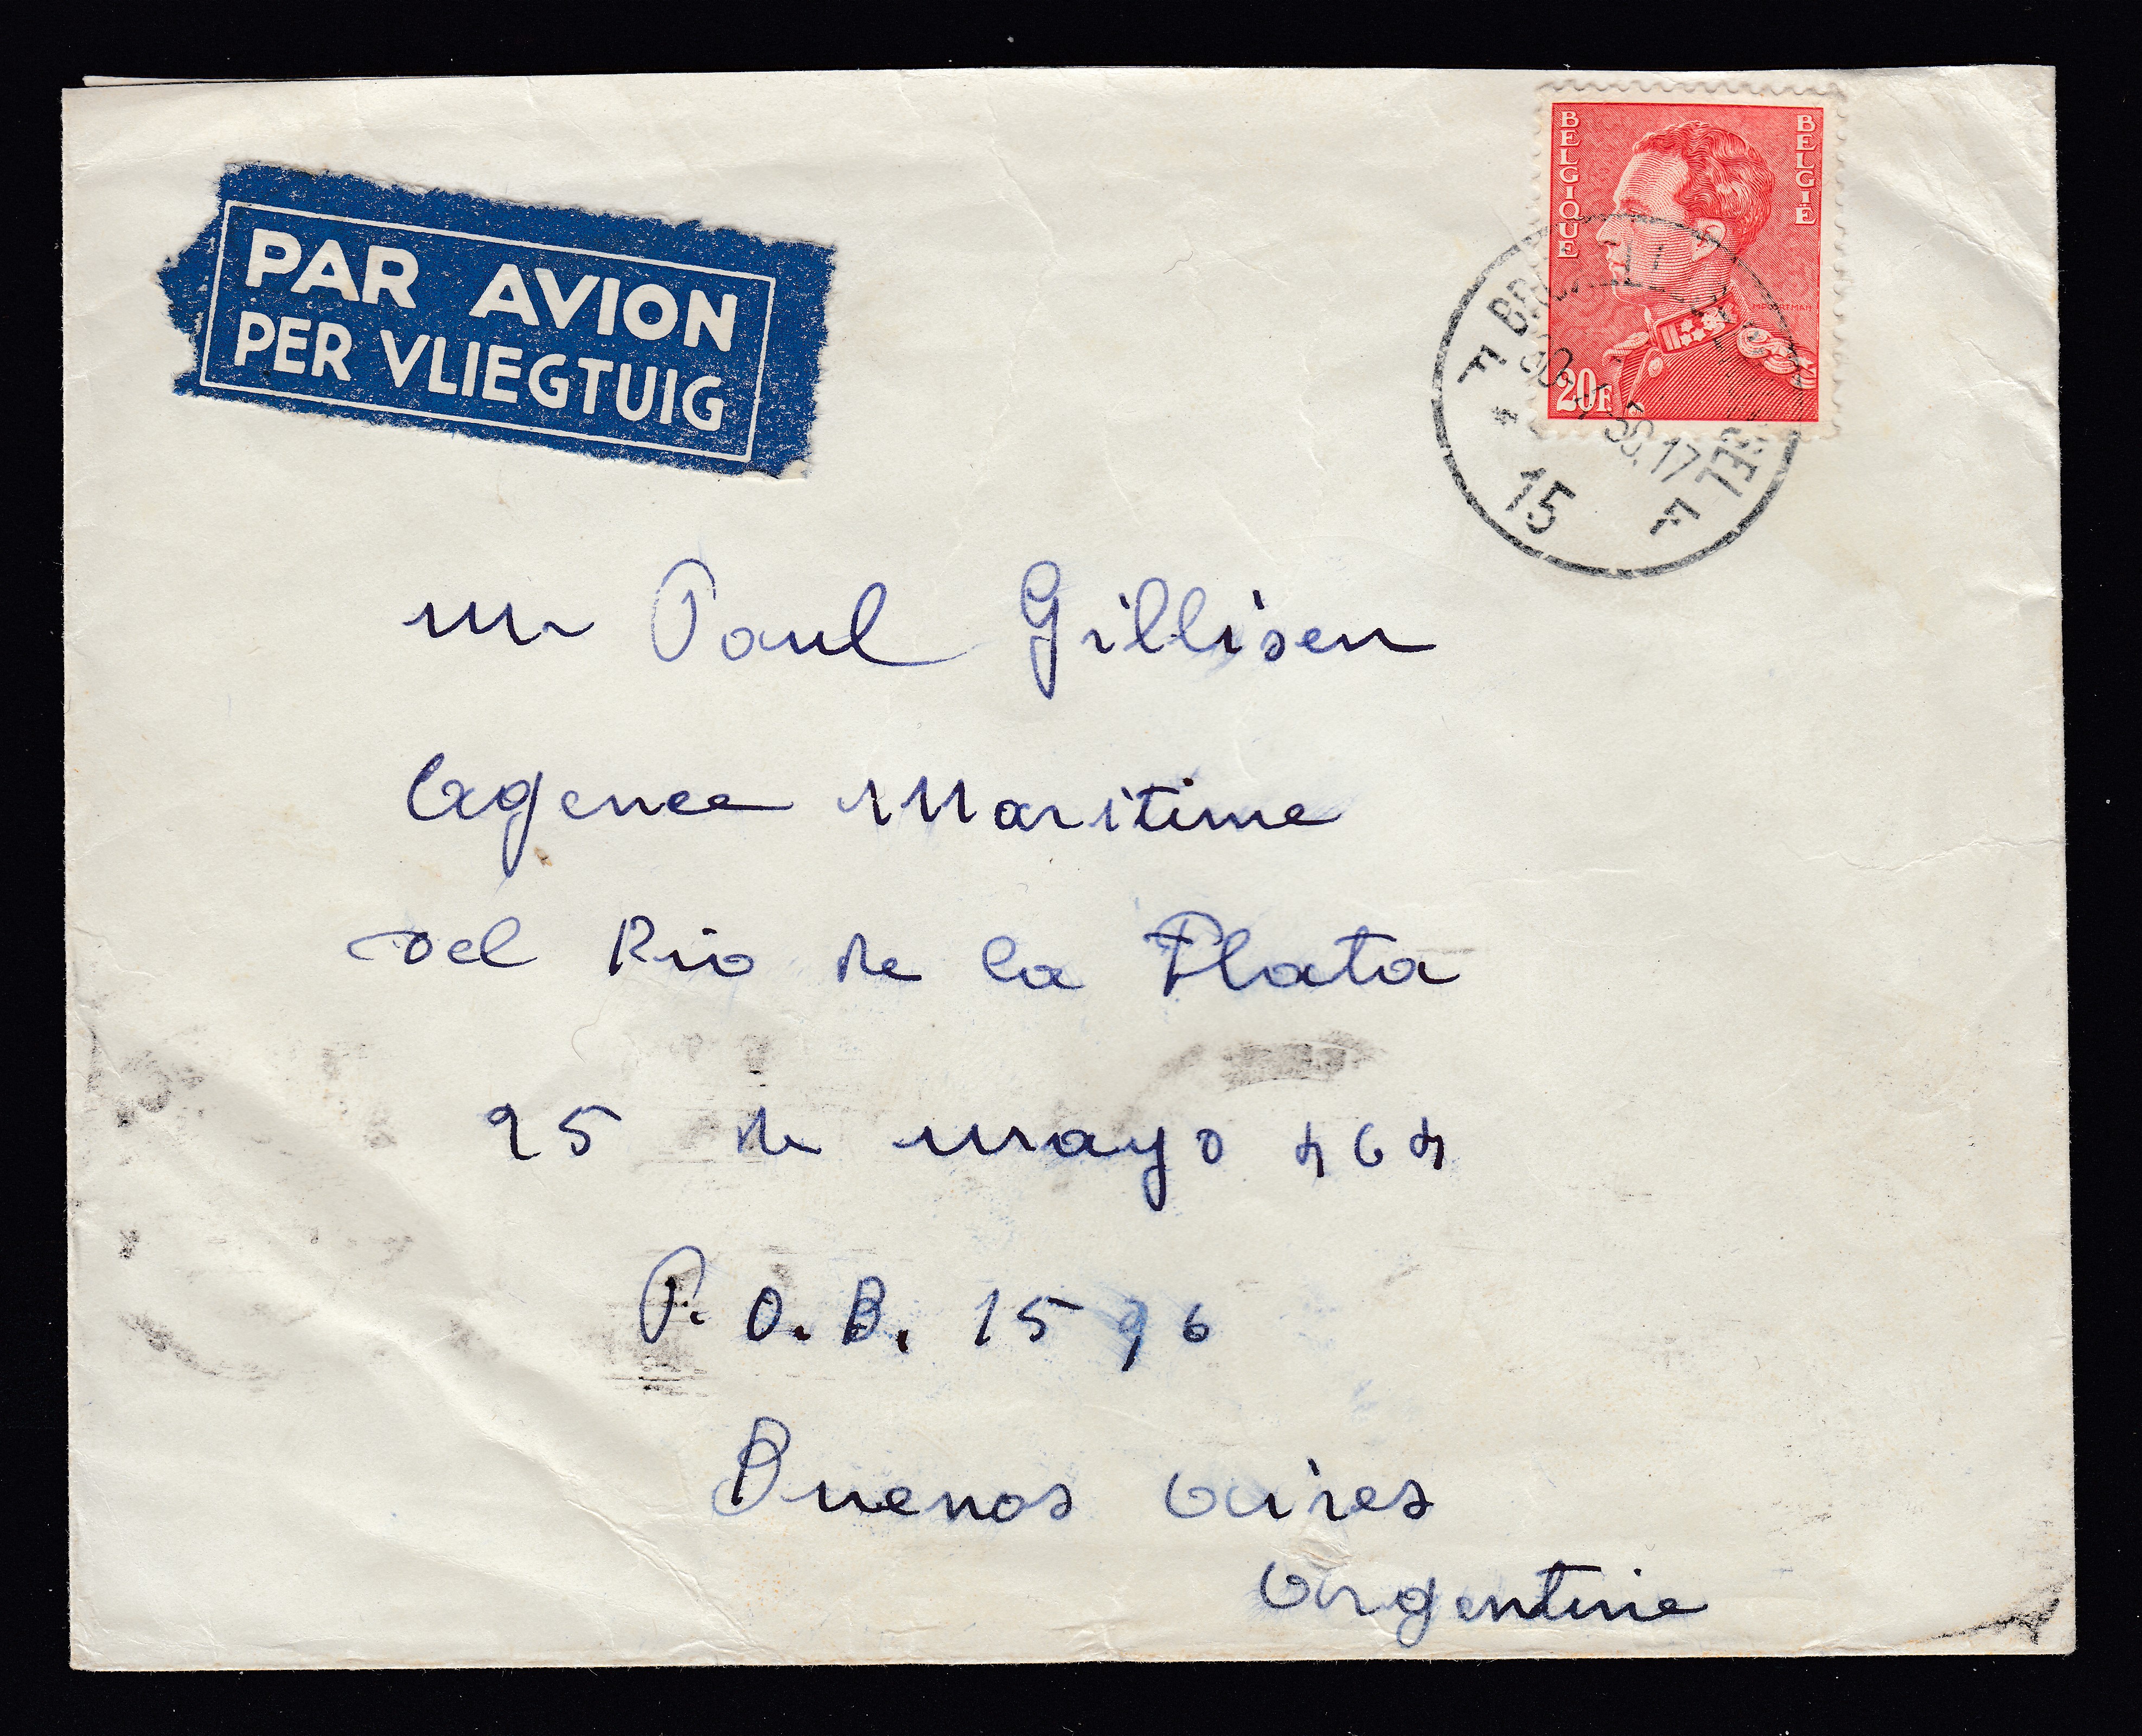 PAR AVION
PER VLIEGTUIG
BELGIQUE
BELGIË
20F
15
F F
Mr Paul Gillisen
Agence Maritime
del Rio de la Plata
25 de mayo 464
P.O.B. 1596
Buenos Aires
Argentine